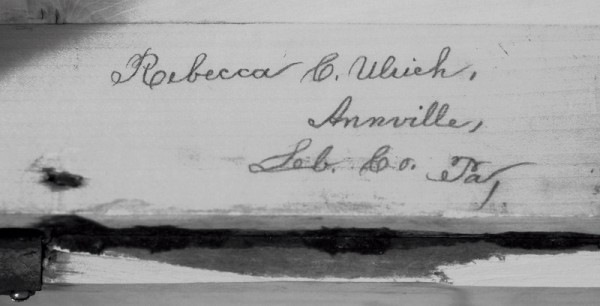 Rebecca C. Ulrich,
Annville,
Leb. Co. Pa,